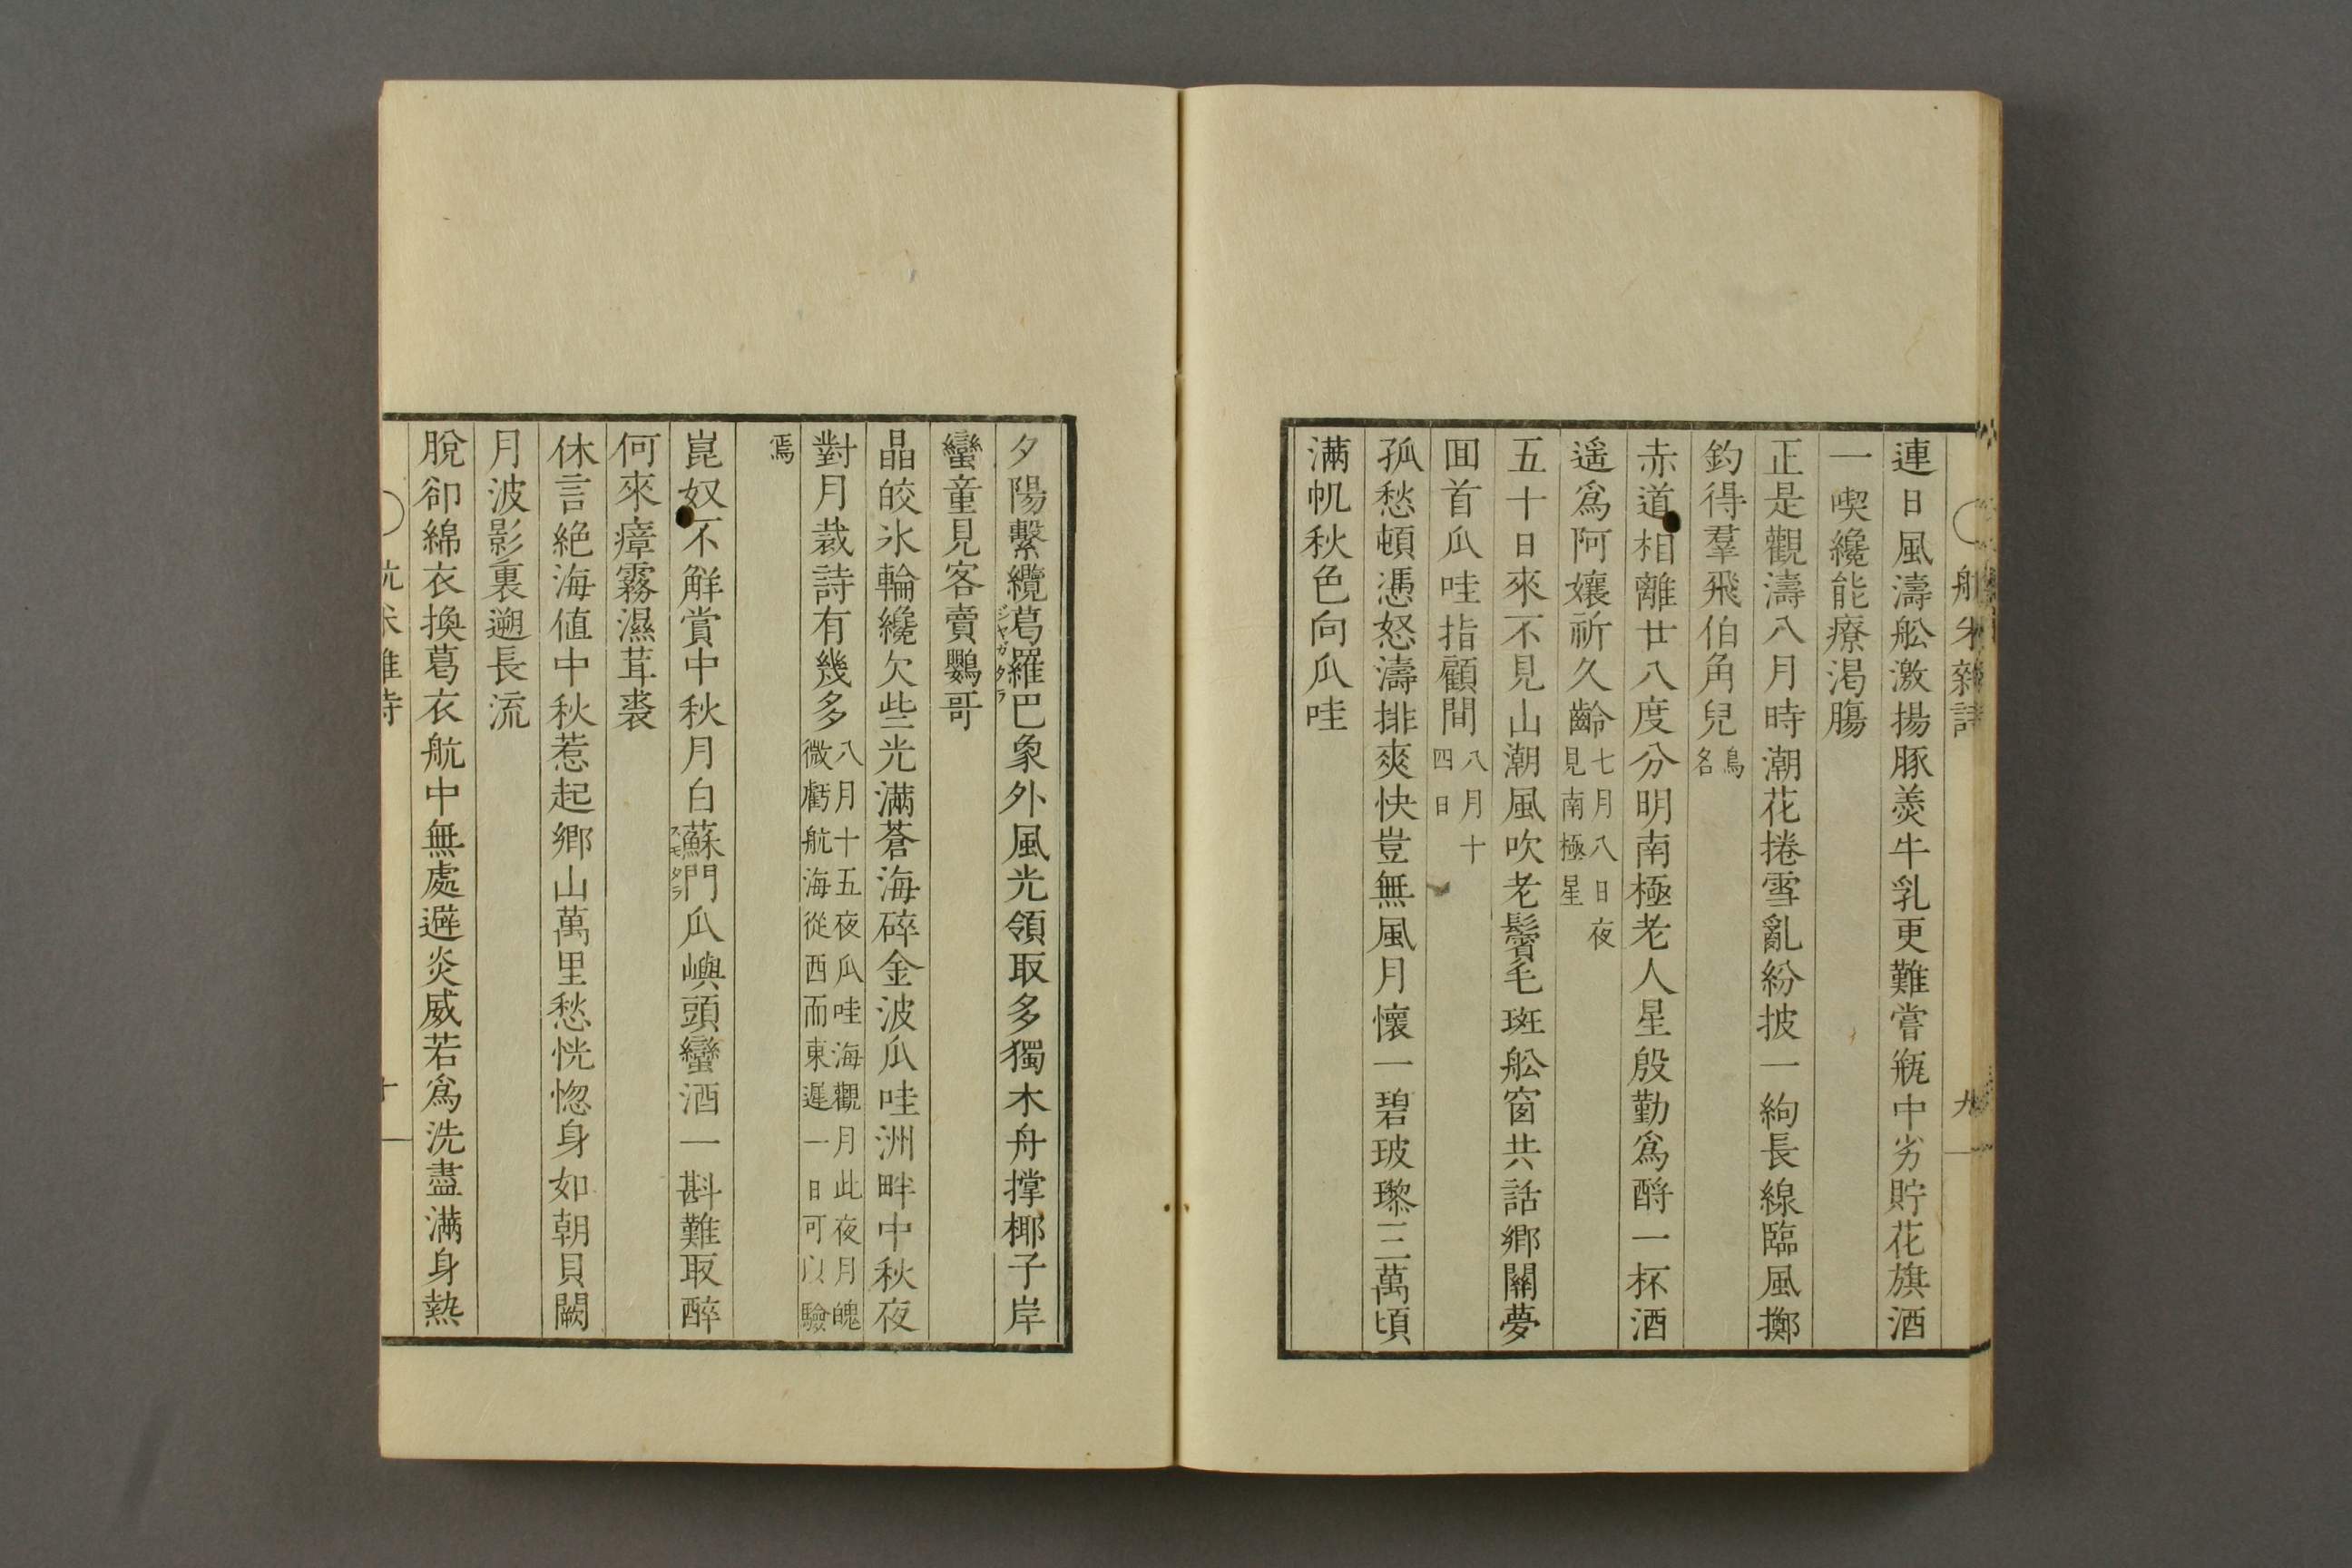 連日風濤舩激揚豚羮牛乳更難嘗瓶中劣貯花旗酒
一喫纔能療渇膓
正是觀濤八月時潮花捲雪亂紛披一絇長線臨風擲
釣得羣飛伯角兒鳥名
赤道相離廿八度分明南極老人星殷勤爲酹一杯酒
遥爲阿孃祈久齡七月八日夜見南極星
五十日來不見山潮風吹老鬢毛斑舩窗共話鄉關夢
囬首瓜哇指顧間八月十四日
孤愁頓憑怒濤排爽快豈無風月懷一碧玻瓈三萬頃
滿帆秋色向瓜哇
夕陽繫纜葛羅巴象外風光領取多獨木舟撑椰子岸
ジヤガタラ
蠻童見客賣鸚哥
晶皎氷輪纔欠些光滿蒼海碎金波瓜哇洲畔中秋夜
對月裁詩有幾多八月十五夜瓜哇海觀月此夜月魄微虧航海從西而東遲一日可以驗
焉
崑奴不解賞中秋月白蘇門瓜嶼頭蠻酒一斟難取醉
スモタラ
何來瘴霧濕茸裘
休言絶海値中秋惹起鄉山萬里愁恍惚身如朝貝闕
月波影裏遡長流
脫卻綿衣換葛衣航中無處避炎威若爲洗盡滿身熱